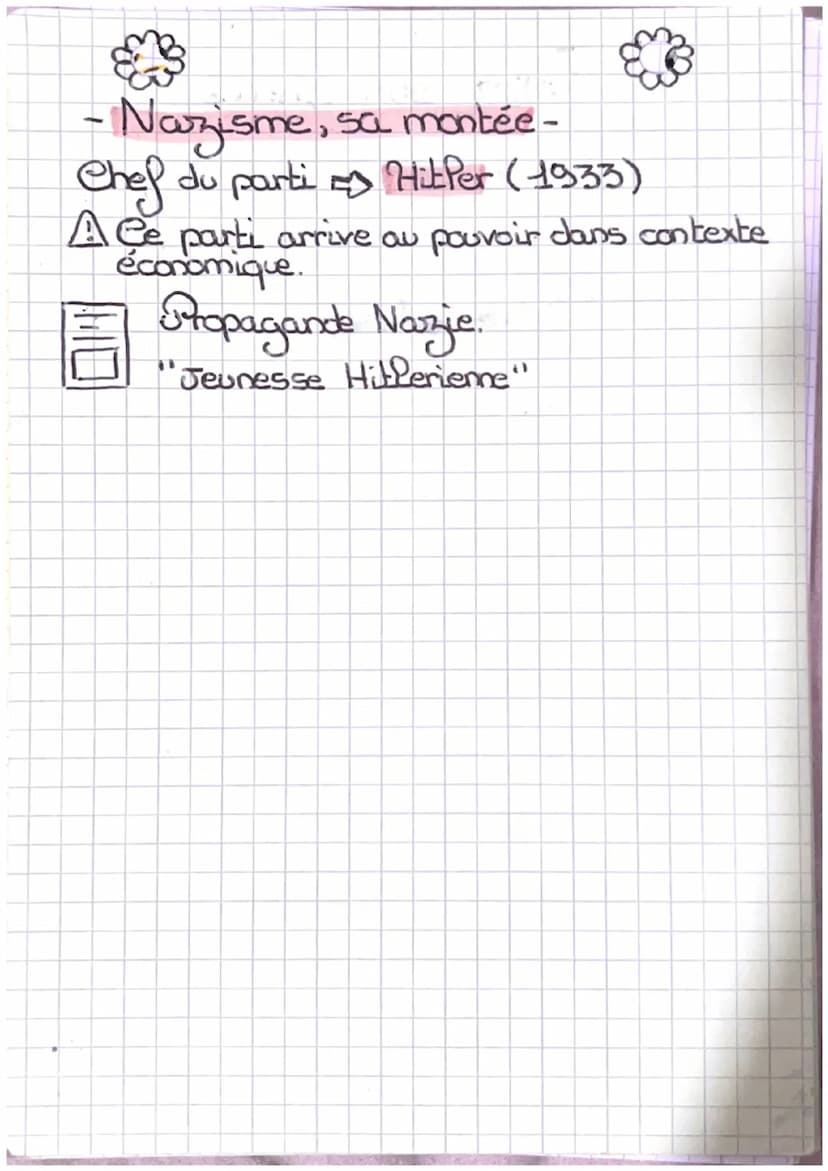 - Nazisme, sa montée -
Chef du parti ⇨ Hitler (1933)
⚠ Ce parti arrive au pouvoir dans contexte
économique.
Propagande Nazie.
"Jeunesse Hitlerienne"